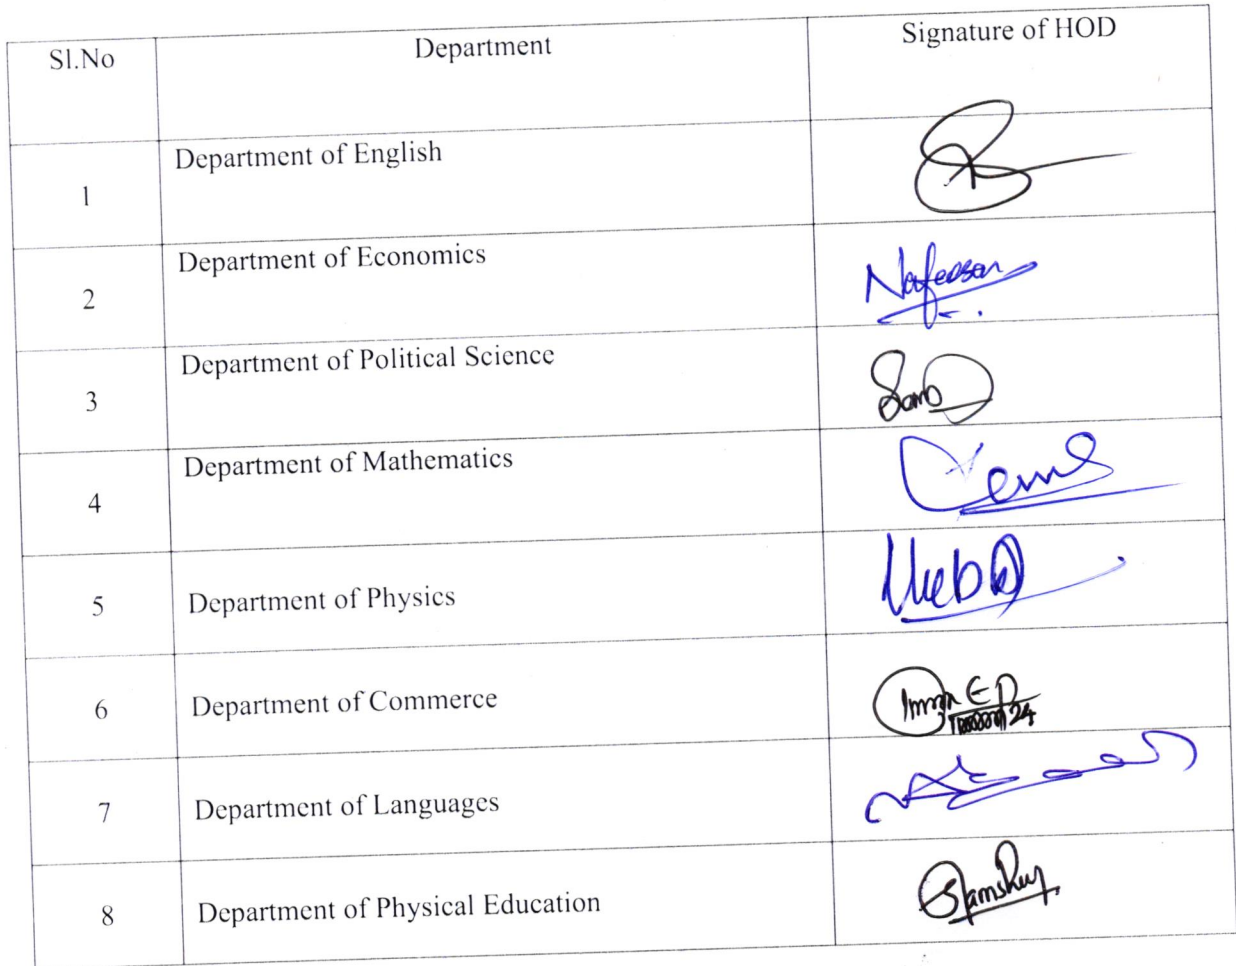 Sl.No Department Signature of HOD
1 Department of English
2 Department of Economics Nafeesan
3 Department of Political Science
4 Department of Mathematics
5 Department of Physics
6 Department of Commerce
7 Department of Languages
8 Department of Physical Education